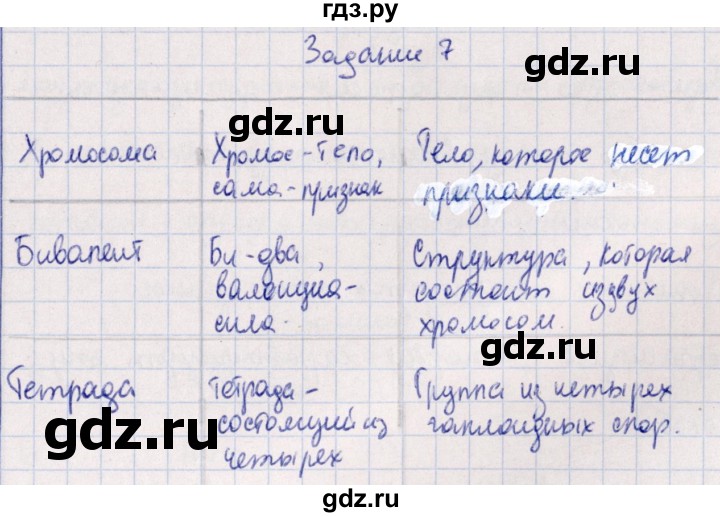 гдз.ру
Задание 7
gdz.ru
gdz.ru
Хромосома Хромос-тело, Тело, которое несет
сама-признак признаки...
gdz.ru
gdz.ru
Бивалент Би-два, Структура, которая
валенциа- состоит из двух
сила. хромосом.
gdz.ru
Тетрада тетрада- Группа из четырех
состоящий из гаплоидных спор.
gdz.ru
gdz.ru
четырех
gdz.ru